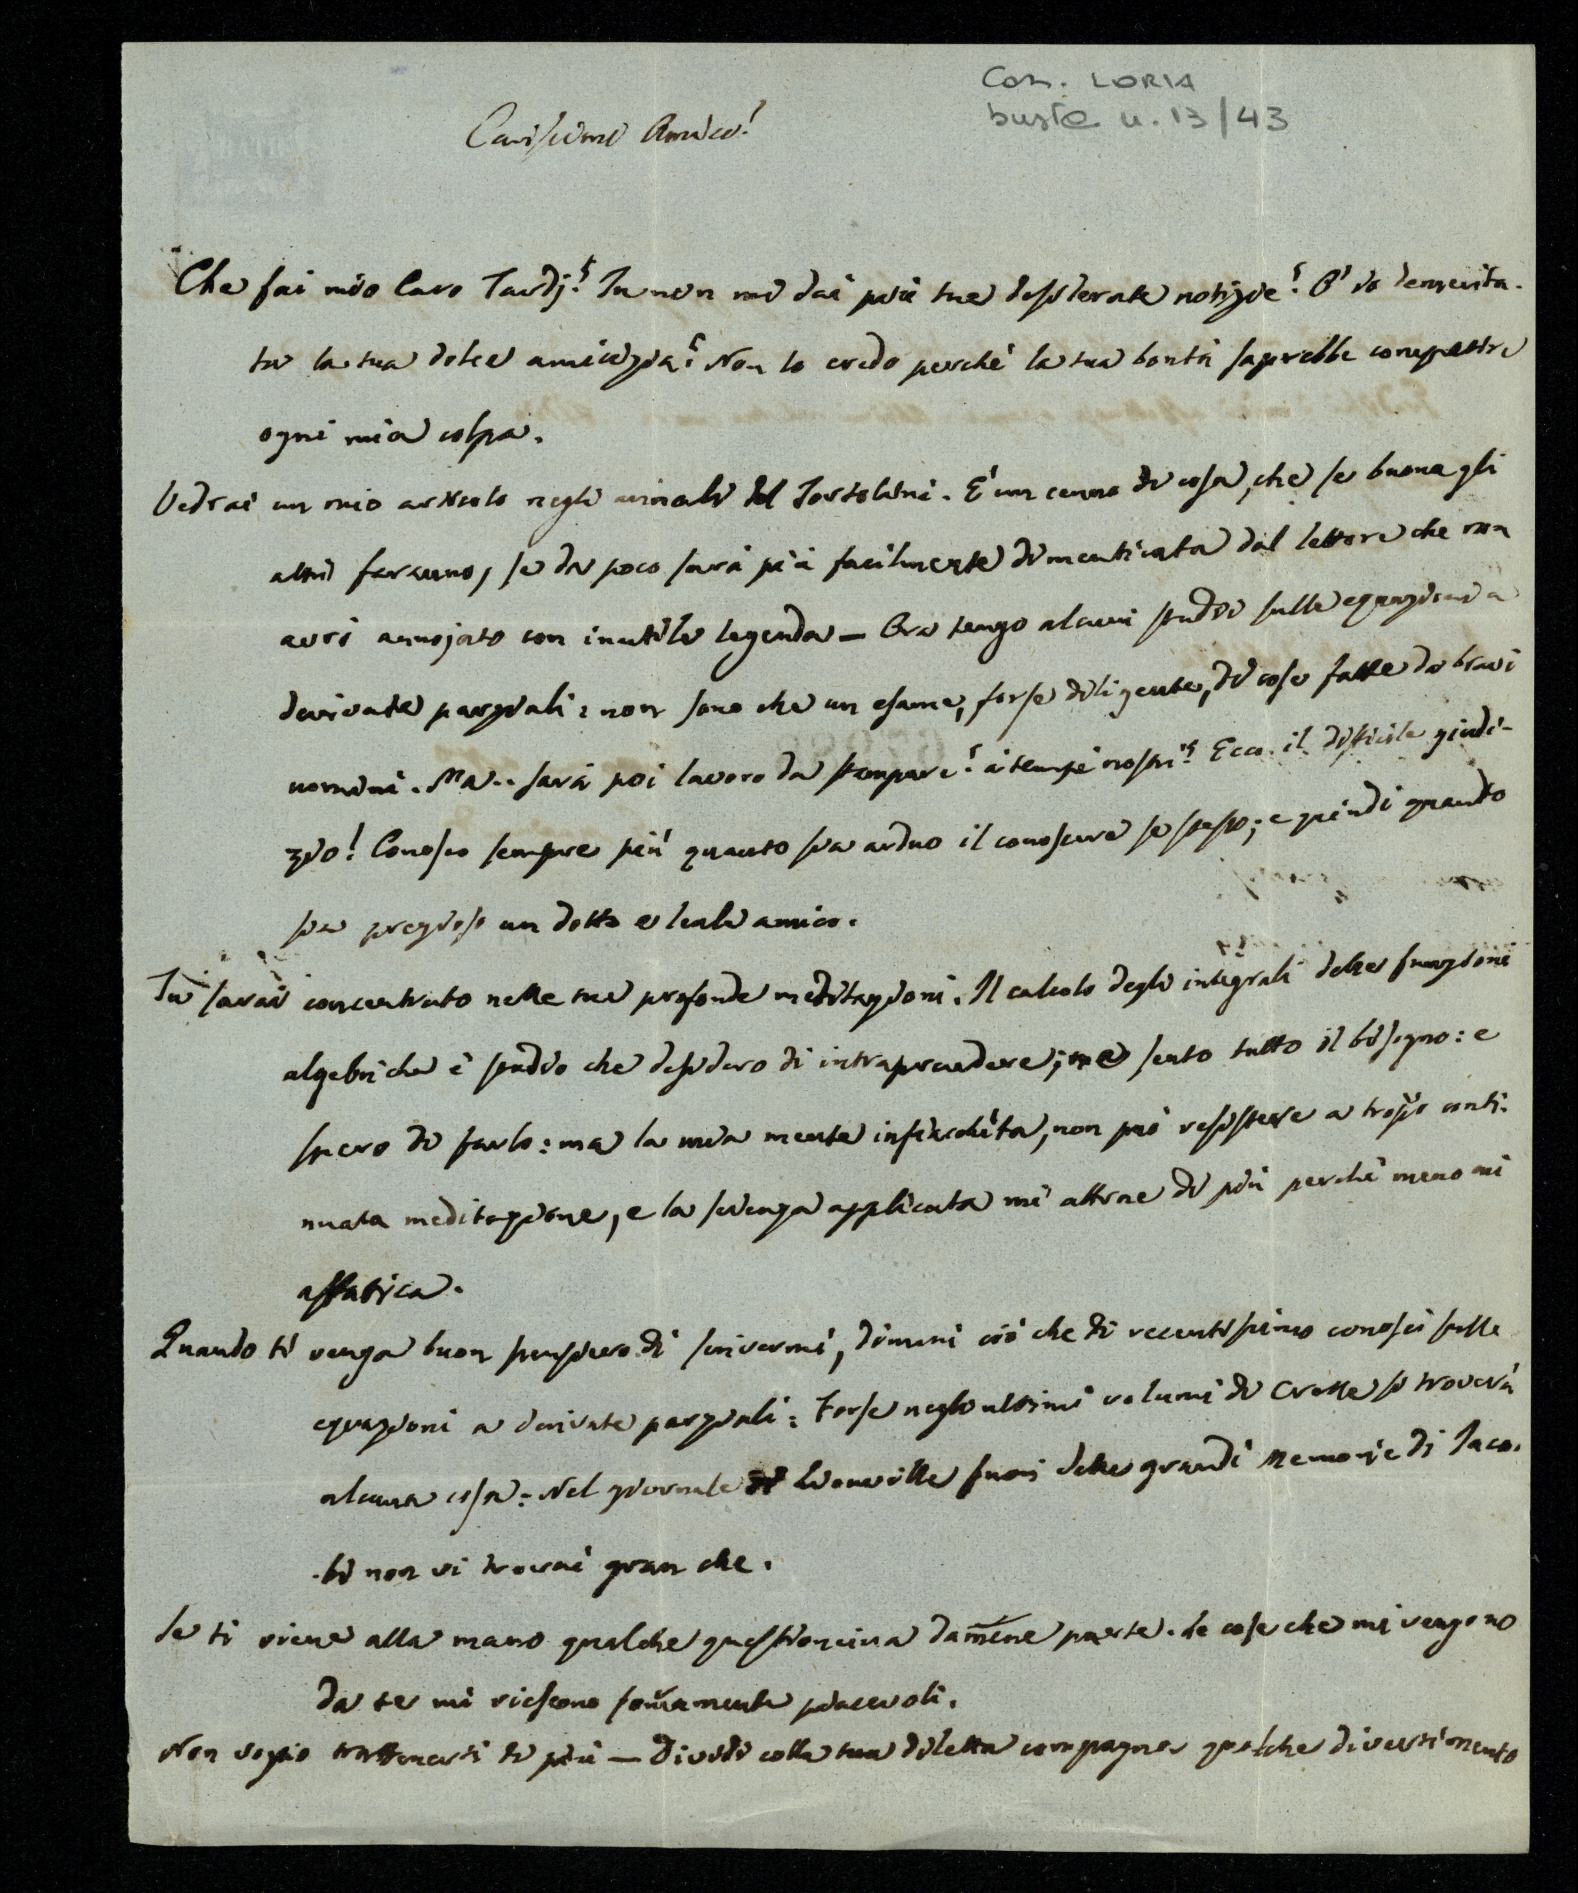 Con. LORIA
busta n. 13/43
Carissimo Amico!
Che fai mio Caro Tardj? Tu non mi dai più tue desiderate notizie? O' io demerita-
to la tua dolce amicizia? Non lo credo perchè la tua bontà saprebbe compatire
ogni mia colpa.
Vedrai un mio articolo negli annali del Tortolini. E' un cenno di cosa, che se buona gli
altri faranno, se da poco sarà più facilmente dimenticata dal lettore che non
avrò annojato con inutile legenda — Ora tengo alcuni studi sulle equazioni a
derivate parziali: non sono che un esame, forse diligente, di cose fatte da bravi
uomini. Ma.. sarà poi lavoro da stampare? ai tempi nostri? Ecco il difficile giudi-
zio! Conosco sempre più quanto sia arduo il conoscere se stesso; e quindi quanto
sia prezioso un dotto e leale amico.
Tu sarai concentrato nelle tue profonde meditazioni. Il calcolo degli integrali delle funzioni
algebriche è studio che desidero di intraprendere; ne sento tutto il bisogno: e
spero di farlo: ma la mia mente infiacchita, non può resistere a troppo conti-
nuata meditazione, e la scienza applicata mi attrae di più perchè meno mi
affatica.
Quando ti venga buon pensiero di scrivermi, dimmi ciò che di recentissimo conosci sulle
equazioni a derivate parziali: Forse negli ultimi volumi di Crelle si troverà
alcuna cosa: Nel giornale di Liouville fuori delle grandi Memorie di Jaco-
bi non vi trovai gran che.
Se ti viene alla mano qualche questioncina dam̄ene parte. Le cose che mi vengono
da te mi riescono som̄amente piacevoli.
Non voglio trattenerti di più — Dividi colla tua diletta compagna qualche divertimento